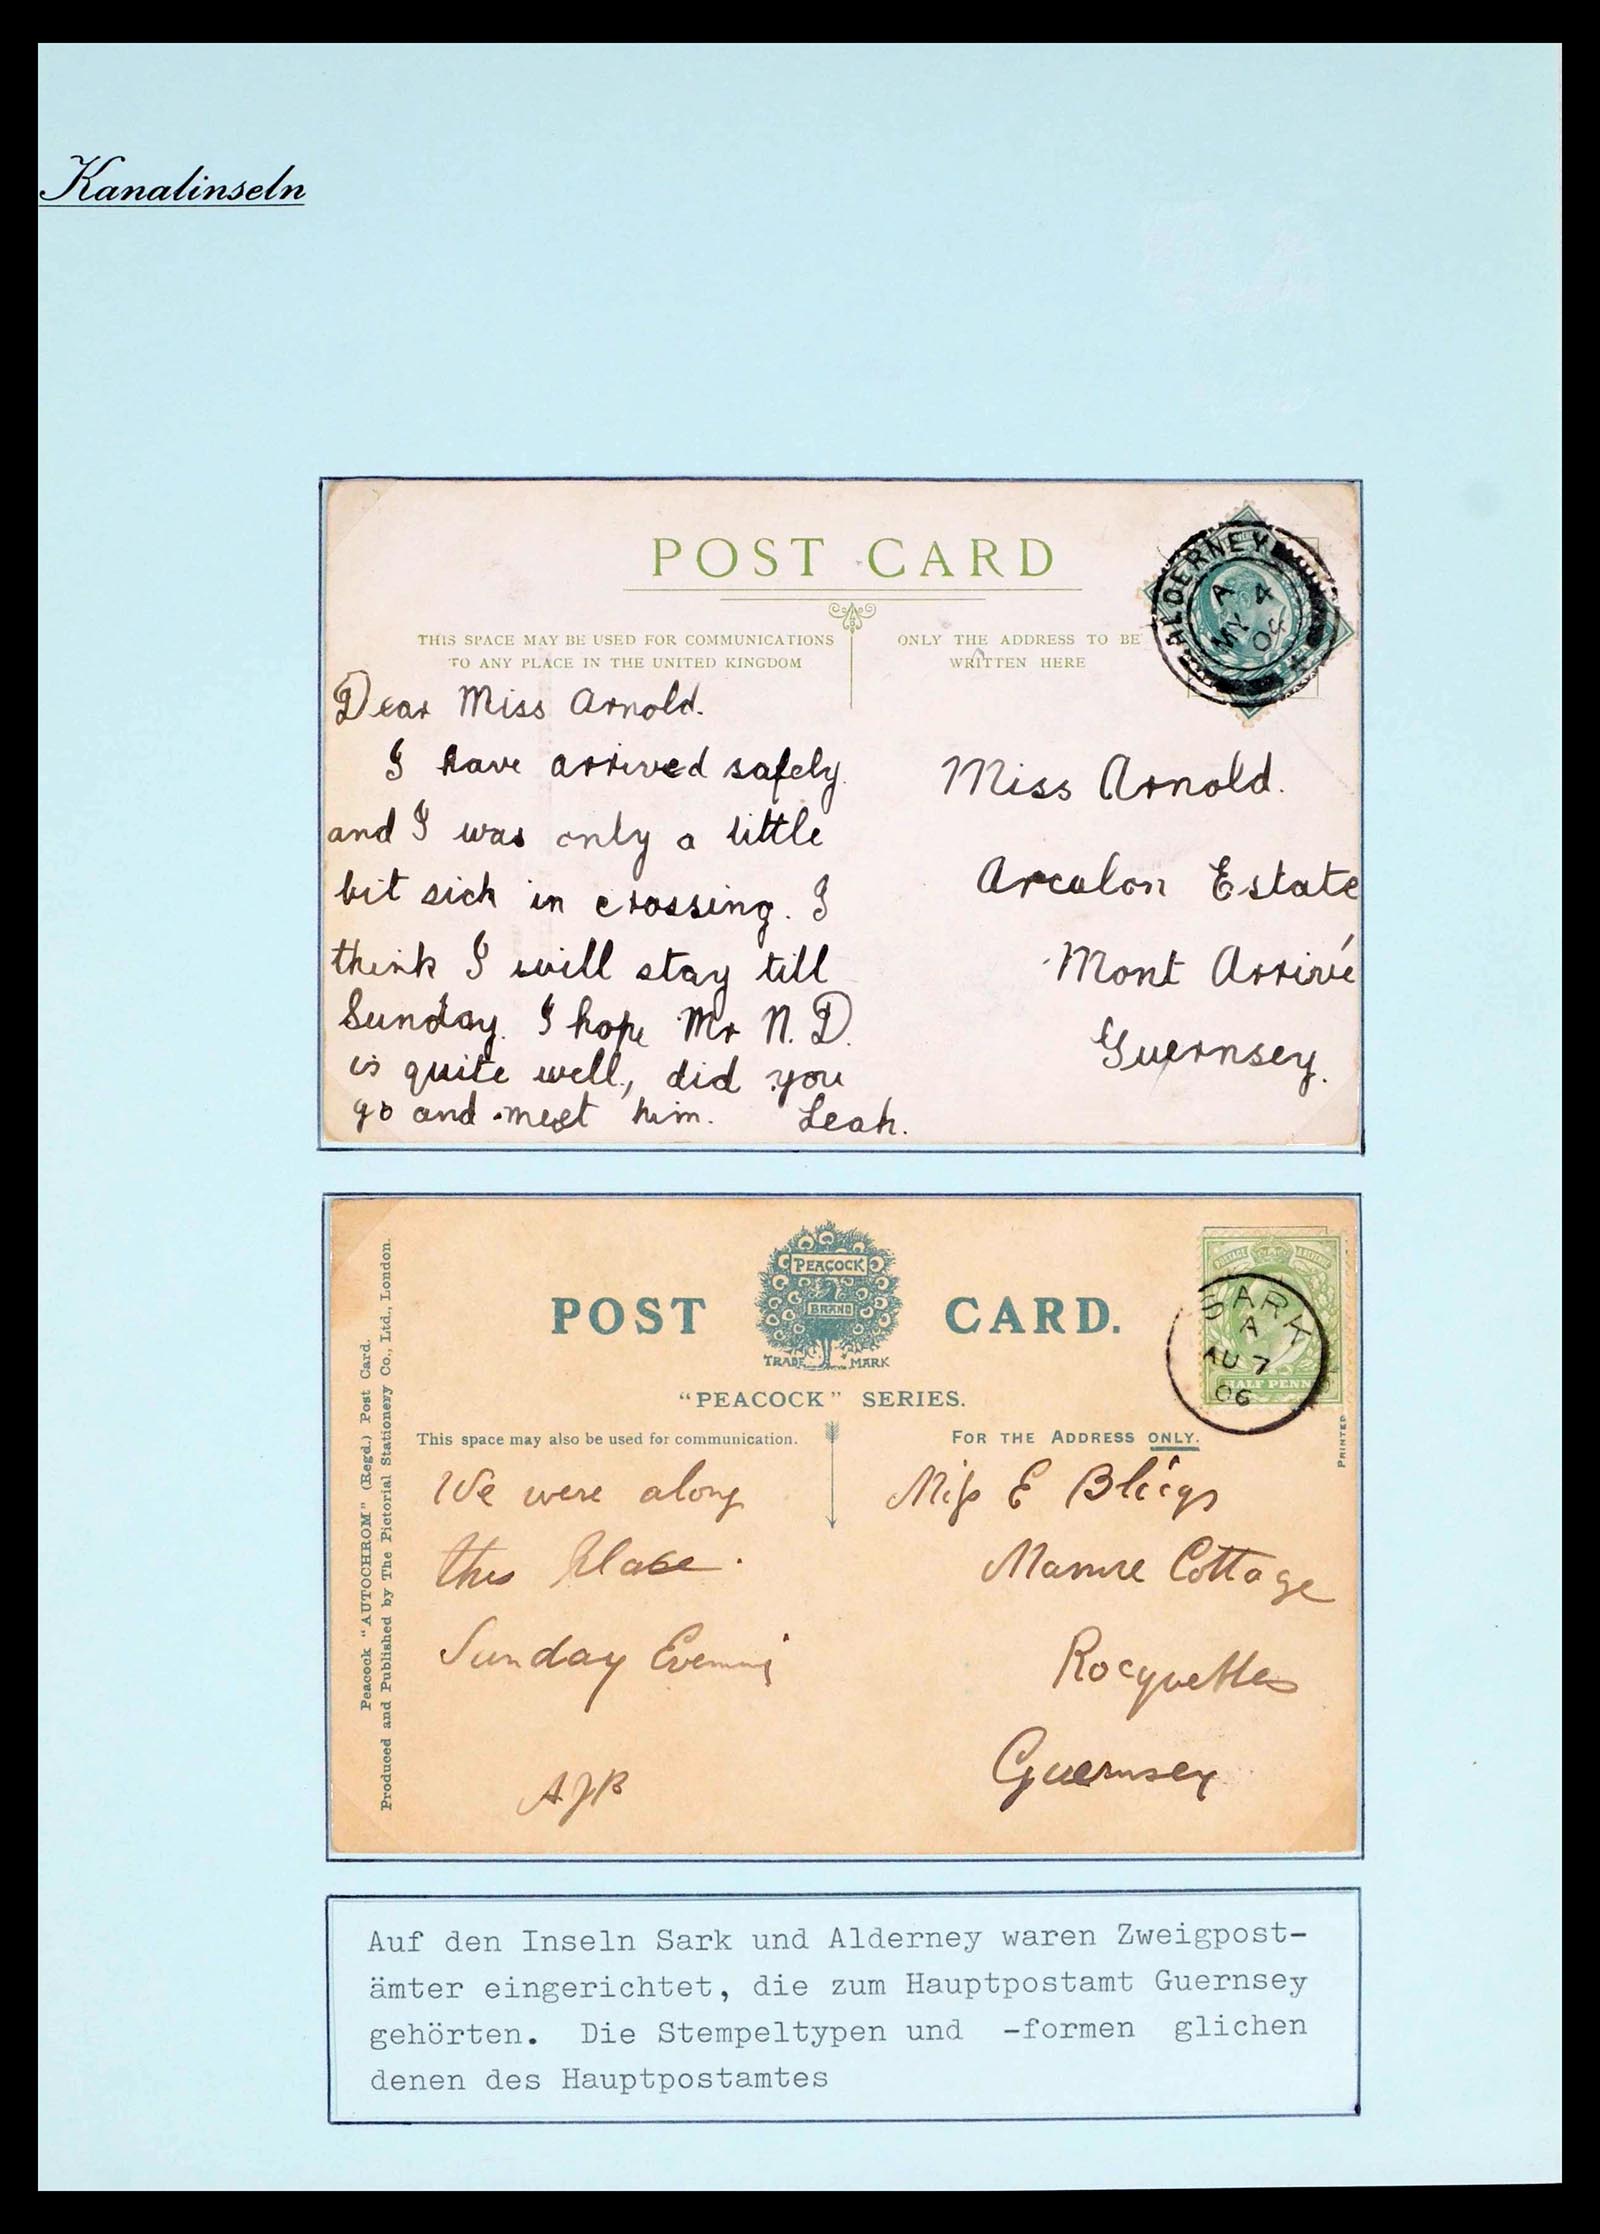 Kanalinseln
POST CARD
THIS SPACE MAY BE USED FOR COMMUNICATIONS
TO ANY PLACE IN THE UNITED KINGDOM
ONLY THE ADDRESS TO BE
WRITTEN HERE
ALDERNEY
A
MY 4
Dear Miss Arnold.
I have arrived safely
and I was only a little
bit sick in crossing. I
think I will stay till
Sunday. I hope Mr N. D.
is quite well, did you
go and meet him. Leah.
Miss Arnold.
Arculon Estate
Mont Arrivé
Guernsey.
POST CARD.
PEACOCK
BRAND
TRADE MARK
"PEACOCK" SERIES.
This space may also be used for communication.
FOR THE ADDRESS ONLY.
Peacock "AUTOCHROM" (Regd.) Post Card.
Produced and Published by The Pictorial Stationery Co., Ltd., London.
POSTAGE & REVENUE
HALF PENN
SARK
A
AU 7
06
PRINTED
We were along
this Place.
Sunday Evening
AJB
Miss E
Cottage
Rocquettes
Guernsey
Auf den Inseln Sark und Alderney waren Zweigpost-
ämter eingerichtet, die zum Hauptpostamt Guernsey
gehörten. Die Stempeltypen und -formen glichen
denen des Hauptpostamtes